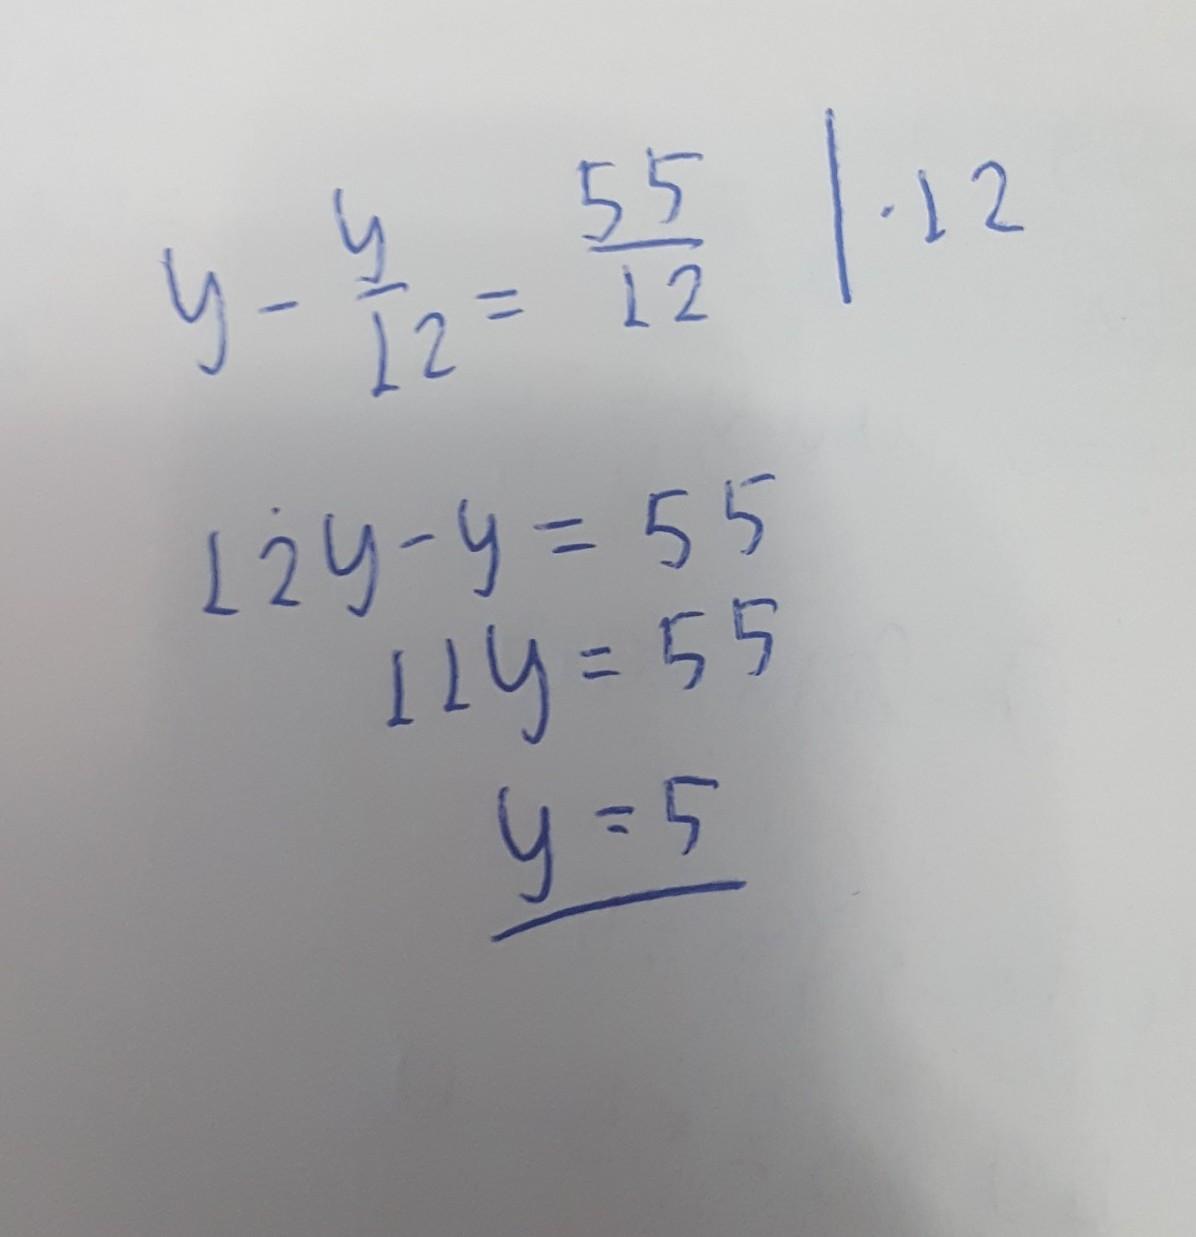 y - y/12 = 55/12 | · 12
12y - y = 55
11y = 55
y = 5